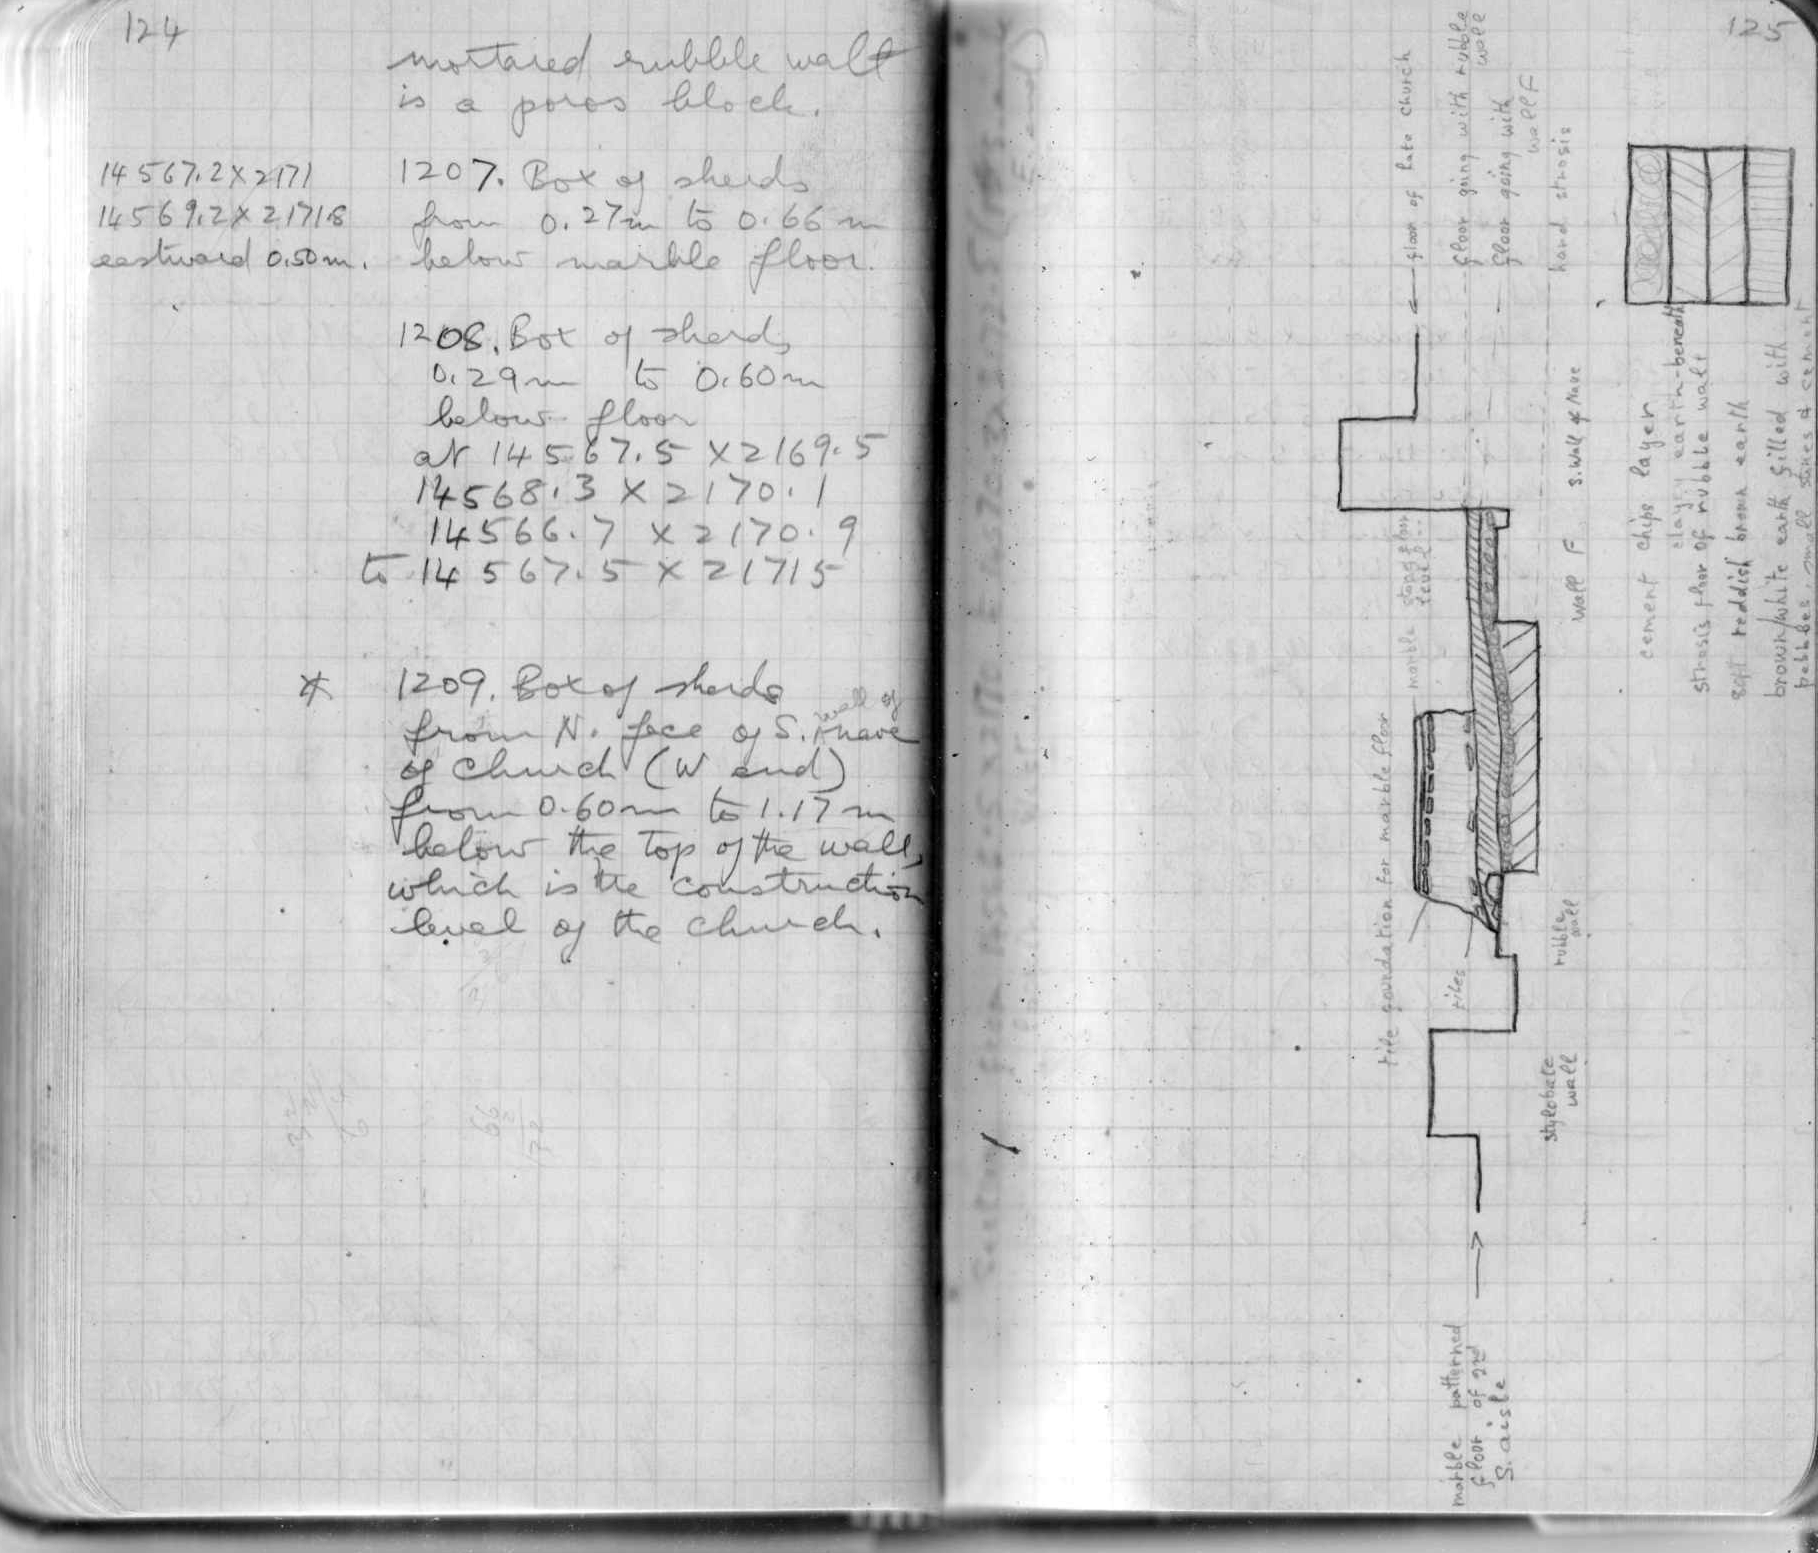 124
mortared rubble wall
is a poros block.
14567.2 x 2171
14569.2 x 2171.8
eastward 0.50m.
1207. Box of sherds
from 0.27m to 0.66 m
below marble floor.
1208. Box of sherds
0.29m to 0.60m
below floor
at 14567.5 x 2169.5
14568.3 x 2170.1
14566.7 x 2170.9
to 14567.5 x 2171 5
* 1209. Box of sherds
from N. face of S. wall of nave
of church (W end)
from 0.60m to 1.17 m
below the top of the wall,
which is the construction
level of the church.
125
floor of late church
floor going with rubble
wall
floor going with
wall F
hard strosis
marble floor
level
S. Wall of Nave
Wall F
tile foundation for marble floor
tiles
rubble
wall
stylobate
wall
marble patterned
floor of 2nd
S. aisle
cement chips layer
clayey earth-beneath
strosis floor of rubble wall
soft reddish brown earth
brown/white earth filled with
pebbles, small stones & cement